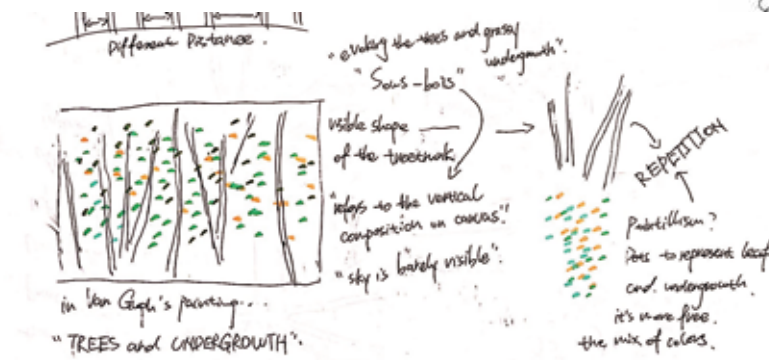 Different Distance.
"evoking the trees and grassy
undergrowth".
"Sous-bois"
visible shape
of the treetrunk
"refers to the vertical
composition on canvas."
"sky is barely visible".
in Van Gogh's painting...
"TREES and UNDERGROWTH".
REPETITION
Pointillism?
Dots to represent leaf
and undergrowth.
it's more free.
the mix of colors.